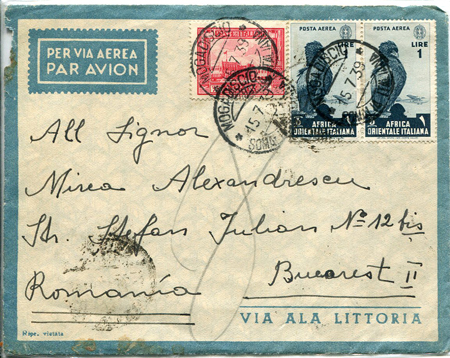 PER VIA AEREA
PAR AVION
MOGADISCIO
15.7.39
POSTA AEREA
POSTA AEREA
LIRE
LIRE
1
AFRICA
ORIENTALE ITALIANA
AFRICA
ORIENTALE ITALIANA
MOGADISCIO
15.7.39
All Signor
Mircea Alexandrescu
Str. Stefan Iulian Nº 12 bis
Bucarest II
Romania
VIA ALA LITTORIA
Ripr. vietata